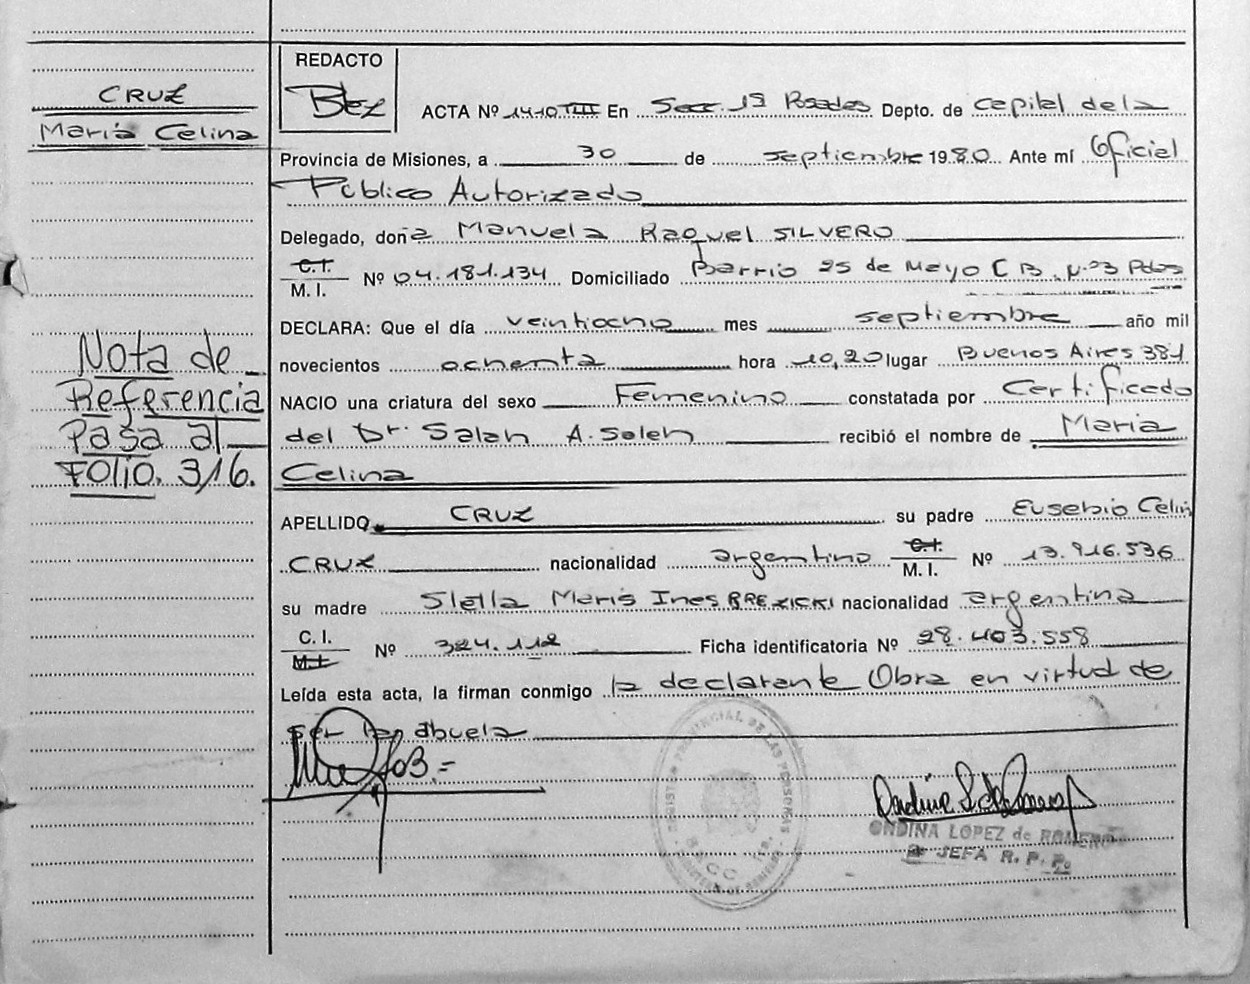 CRUZ
María Celina
Nota de
Referencia
Pasa al
FOLIO. 316.
REDACTO
ACTA Nº 1410 TIII En Secc. 1ª Posadas Depto. de Capital de la
Provincia de Misiones, a 30 de septiembre 1980 Ante mí Oficial
Público Autorizado
Delegado, doña Manuela Raquel SILVERO
C.I.
M. I. Nº 04.181.134 Domiciliado Barrio 25 de Mayo C B. N.º3 Pdas
DECLARA: Que el día veintiocho mes septiembre año mil
novecientos ochenta hora 10,20 lugar Buenos Aires 381
NACIO una criatura del sexo Femenino constatada por Certificado
del Dr. Salah A. Saleh recibió el nombre de Maria
Celina
APELLIDO CRUZ su padre Eusebio Celin
CRUZ nacionalidad argentino C.I. M. I. Nº 13.916.536
su madre Stella Maris Ines BREZICKI nacionalidad argentina
C. I.
M.I. Nº 324.112 Ficha identificatoria Nº 28.403.558
Leída esta acta, la firman conmigo la declarante Obra en virtud de
ser la abuela
REGISTRO PROVINCIAL DE LAS PERSONAS
ONDINA LOPEZ de ROMERO
JEFA R. P. P.